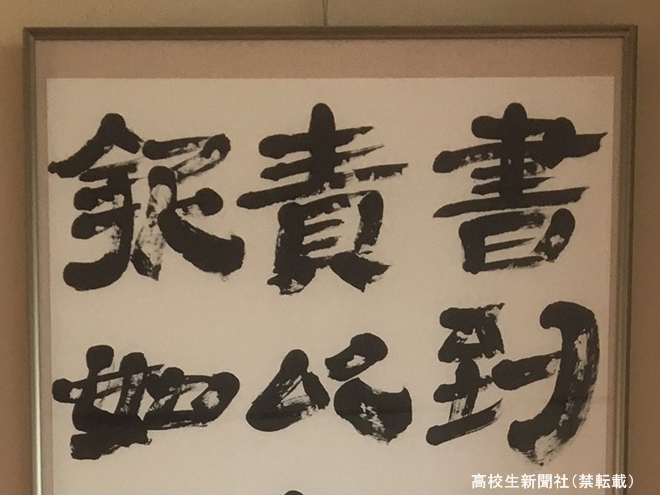 書到
責以
銀如
高校生新聞社(禁転載)